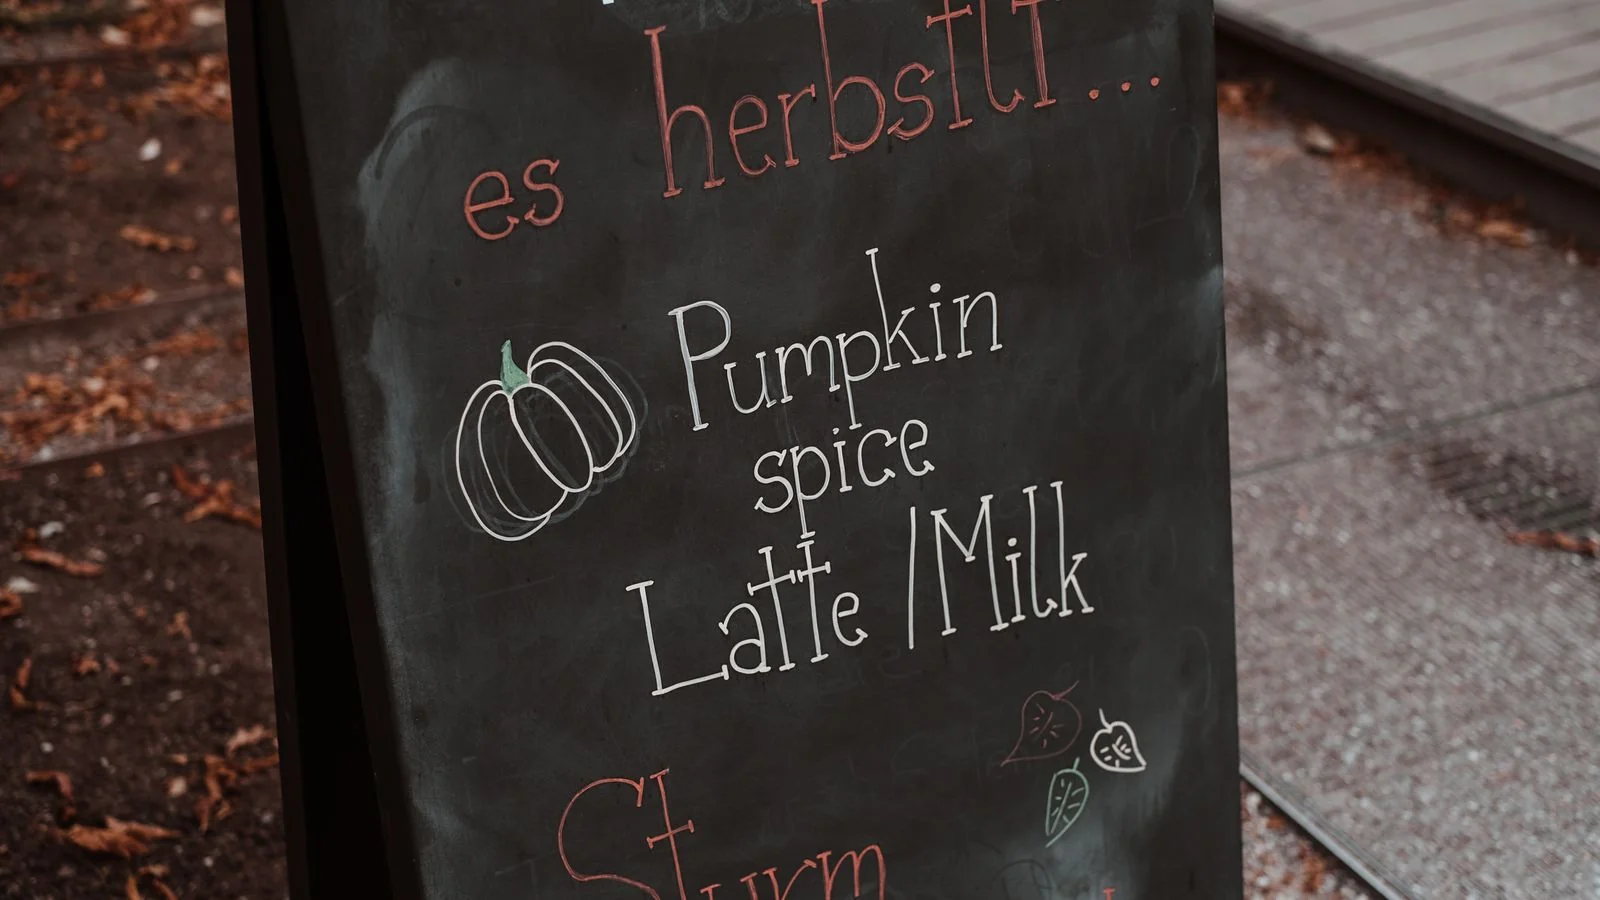 es herbstlt...
Pumpkin
spice
Latte /Milk
Sturm